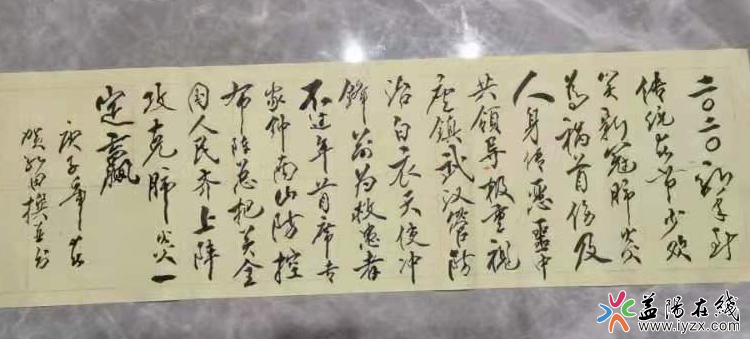 二〇二〇新年到
传统春节少欢
笑新冠肺炎
为祸首伤及
人身传恶噩中
共领导极重视
座镇武汉管防
治白衣天使冲
锋前为救患者
不过年首席专
家仲南山防控
布阵总把关全
国人民齐上阵
攻克肺炎一
定赢
庚子年春
贺田撰并书
益阳在线
www.iyzx.cn